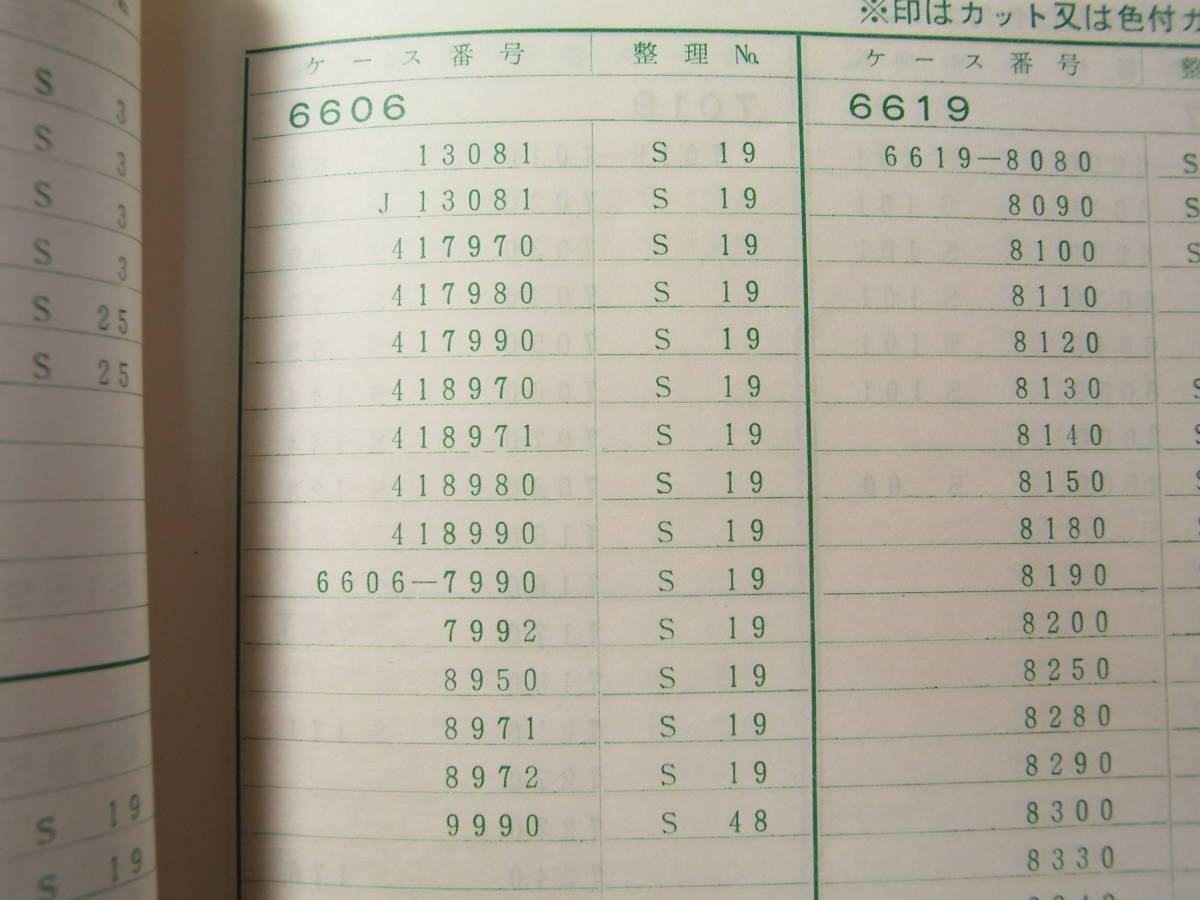 ※印はカット又は色付
ケース番号 整理 No. ケース番号 整
6606 6619
13081 S 19 6619-8080 S
J 13081 S 19 8090 S
417970 S 19 8100 S
417980 S 19 8110
417990 S 19 8120
418970 S 19 8130 S
418971 S 19 8140 S
418980 S 19 8150 S
418990 S 19 8180
6606-7990 S 19 8190
7992 S 19 8200
8950 S 19 8250
8971 S 19 8280
8972 S 19 8290
9990 S 48 8300
8330
S 3
S 3
S 3
S 3
S 25
S 25
S 19
S 19